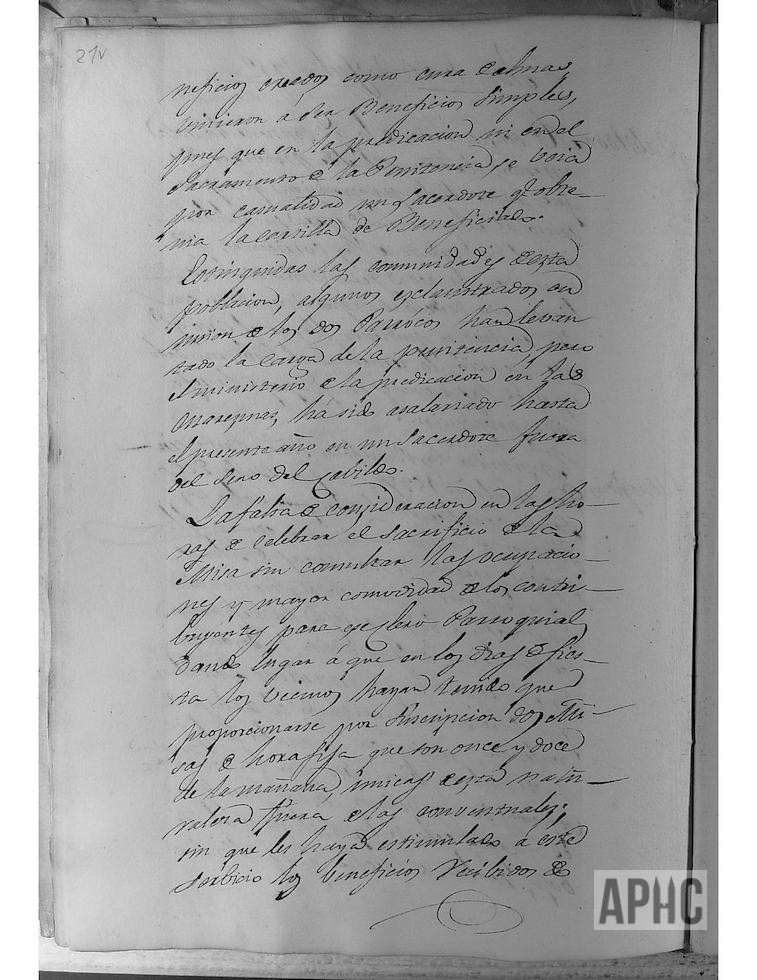 21v
neficios creados como cura de almas,
vinieron á ser Beneficios simples,
pues que en la predicacion ni en el
Sacramento de la Penitencia, se veia
por casualidad un Sacerdote q.e obte-
nia la cartilla de Beneficiado.
Extinguidas las comunidades de esta
poblacion, algunos exclaustrados en
union de los dos Parrócos han levan
tado la carga de la penitencia, pero
el ministerio de la predicacion en las
Maremas, ha sido asalariado hasta
el presente año en un Sacerdote fuera
del seno del Cabildo.
La falta de consideracion en las ho-
ras de celebrar el sacrificio de la
Misa sin consultar las ocupacio-
nes y mayor comodidad de los contri-
buyentes para ese Clero Parroquial,
dando lugar á que en los dias de fies-
ta los vecinos hayan tenido que
proporcionarse por suscripcion dos Mi-
sas de hora fija que son once y doce
de la mañana, unicas de esta natu-
raleza fuera de las conventuales;
sin que les haya estimulado a este
servicio los beneficios recibidos de
APHC